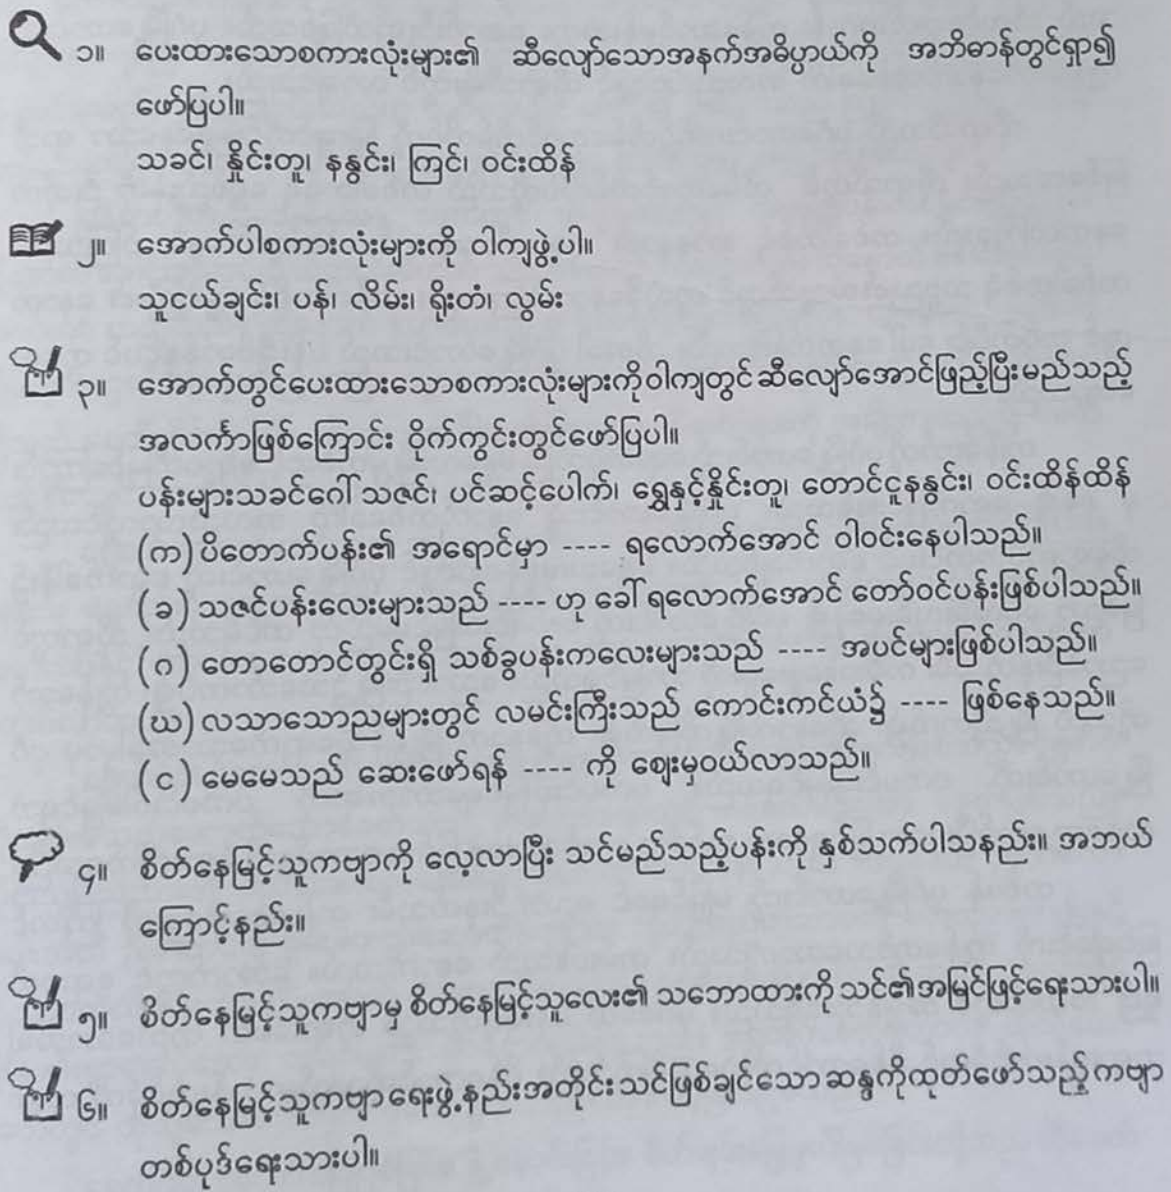 ၁။ ပေးထားသောစကားလုံးများ၏ ဆီလျော်သောအနက်အဓိပ္ပာယ်ကို အဘိဓာန်တွင်ရှာ၍
ဖော်ပြပါ။
သခင်၊ နှိုင်းတူ၊ နနွင်း၊ ကြင်၊ ဝင်းထိန်
၂။ အောက်ပါစကားလုံးများကို ဝါကျဖွဲ့ပါ။
သူငယ်ချင်း၊ ပန်၊ လိမ်း၊ ရိုးတံ၊ လွမ်း
၃။ အောက်တွင်ပေးထားသောစကားလုံးများကိုဝါကျတွင်ဆီလျော်အောင်ဖြည့်ပြီးမည်သည့်
အလင်္ကာဖြစ်ကြောင်း ဝိုက်ကွင်းတွင်ဖော်ပြပါ။
ပန်းများသခင်ဂေါ်သဇင်၊ ပင်ဆင့်ပေါက်၊ ရွှေနှင့်နှိုင်းတူ၊ တောင်ငူနနွင်း၊ ဝင်းထိန်ထိန်
(က) ပိတောက်ပန်း၏ အရောင်မှာ ---- ရလောက်အောင် ဝါဝင်းနေပါသည်။
(ခ) သဇင်ပန်းလေးများသည် ---- ဟု ခေါ်ရလောက်အောင် တော်ဝင်ပန်းဖြစ်ပါသည်။
(ဂ) တောတောင်တွင်းရှိ သစ်ခွပန်းကလေးများသည် ---- အပင်များဖြစ်ပါသည်။
(ဃ) လသာသောညများတွင် လမင်းကြီးသည် ကောင်းကင်ယံ၌ ---- ဖြစ်နေသည်။
(င) မေမေသည် ဆေးဖော်ရန် ---- ကို ဈေးမှဝယ်လာသည်။
၄။ စိတ်နေမြင့်သူကဗျာကို လေ့လာပြီး သင်မည်သည့်ပန်းကို နှစ်သက်ပါသနည်း။ အဘယ်
ကြောင့်နည်း။
၅။ စိတ်နေမြင့်သူကဗျာမှ စိတ်နေမြင့်သူလေး၏ သဘောထားကို သင်၏အမြင်ဖြင့်ရေးသားပါ။
၆။ စိတ်နေမြင့်သူကဗျာ ရေးဖွဲ့နည်းအတိုင်း သင်ဖြစ်ချင်သော ဆန္ဒကိုထုတ်ဖော်သည့် ကဗျာ
တစ်ပုဒ်ရေးသားပါ။